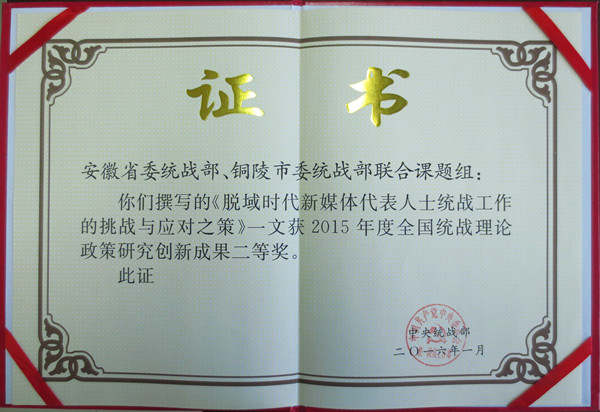 证 书
安徽省委统战部、铜陵市委统战部联合课题组：
你们撰写的《脱域时代新媒体代表人士统战工作
的挑战与应对之策》一文获 2015 年度全国统战理论
政策研究创新成果二等奖。
此证
中央统战部
二〇一六年一月